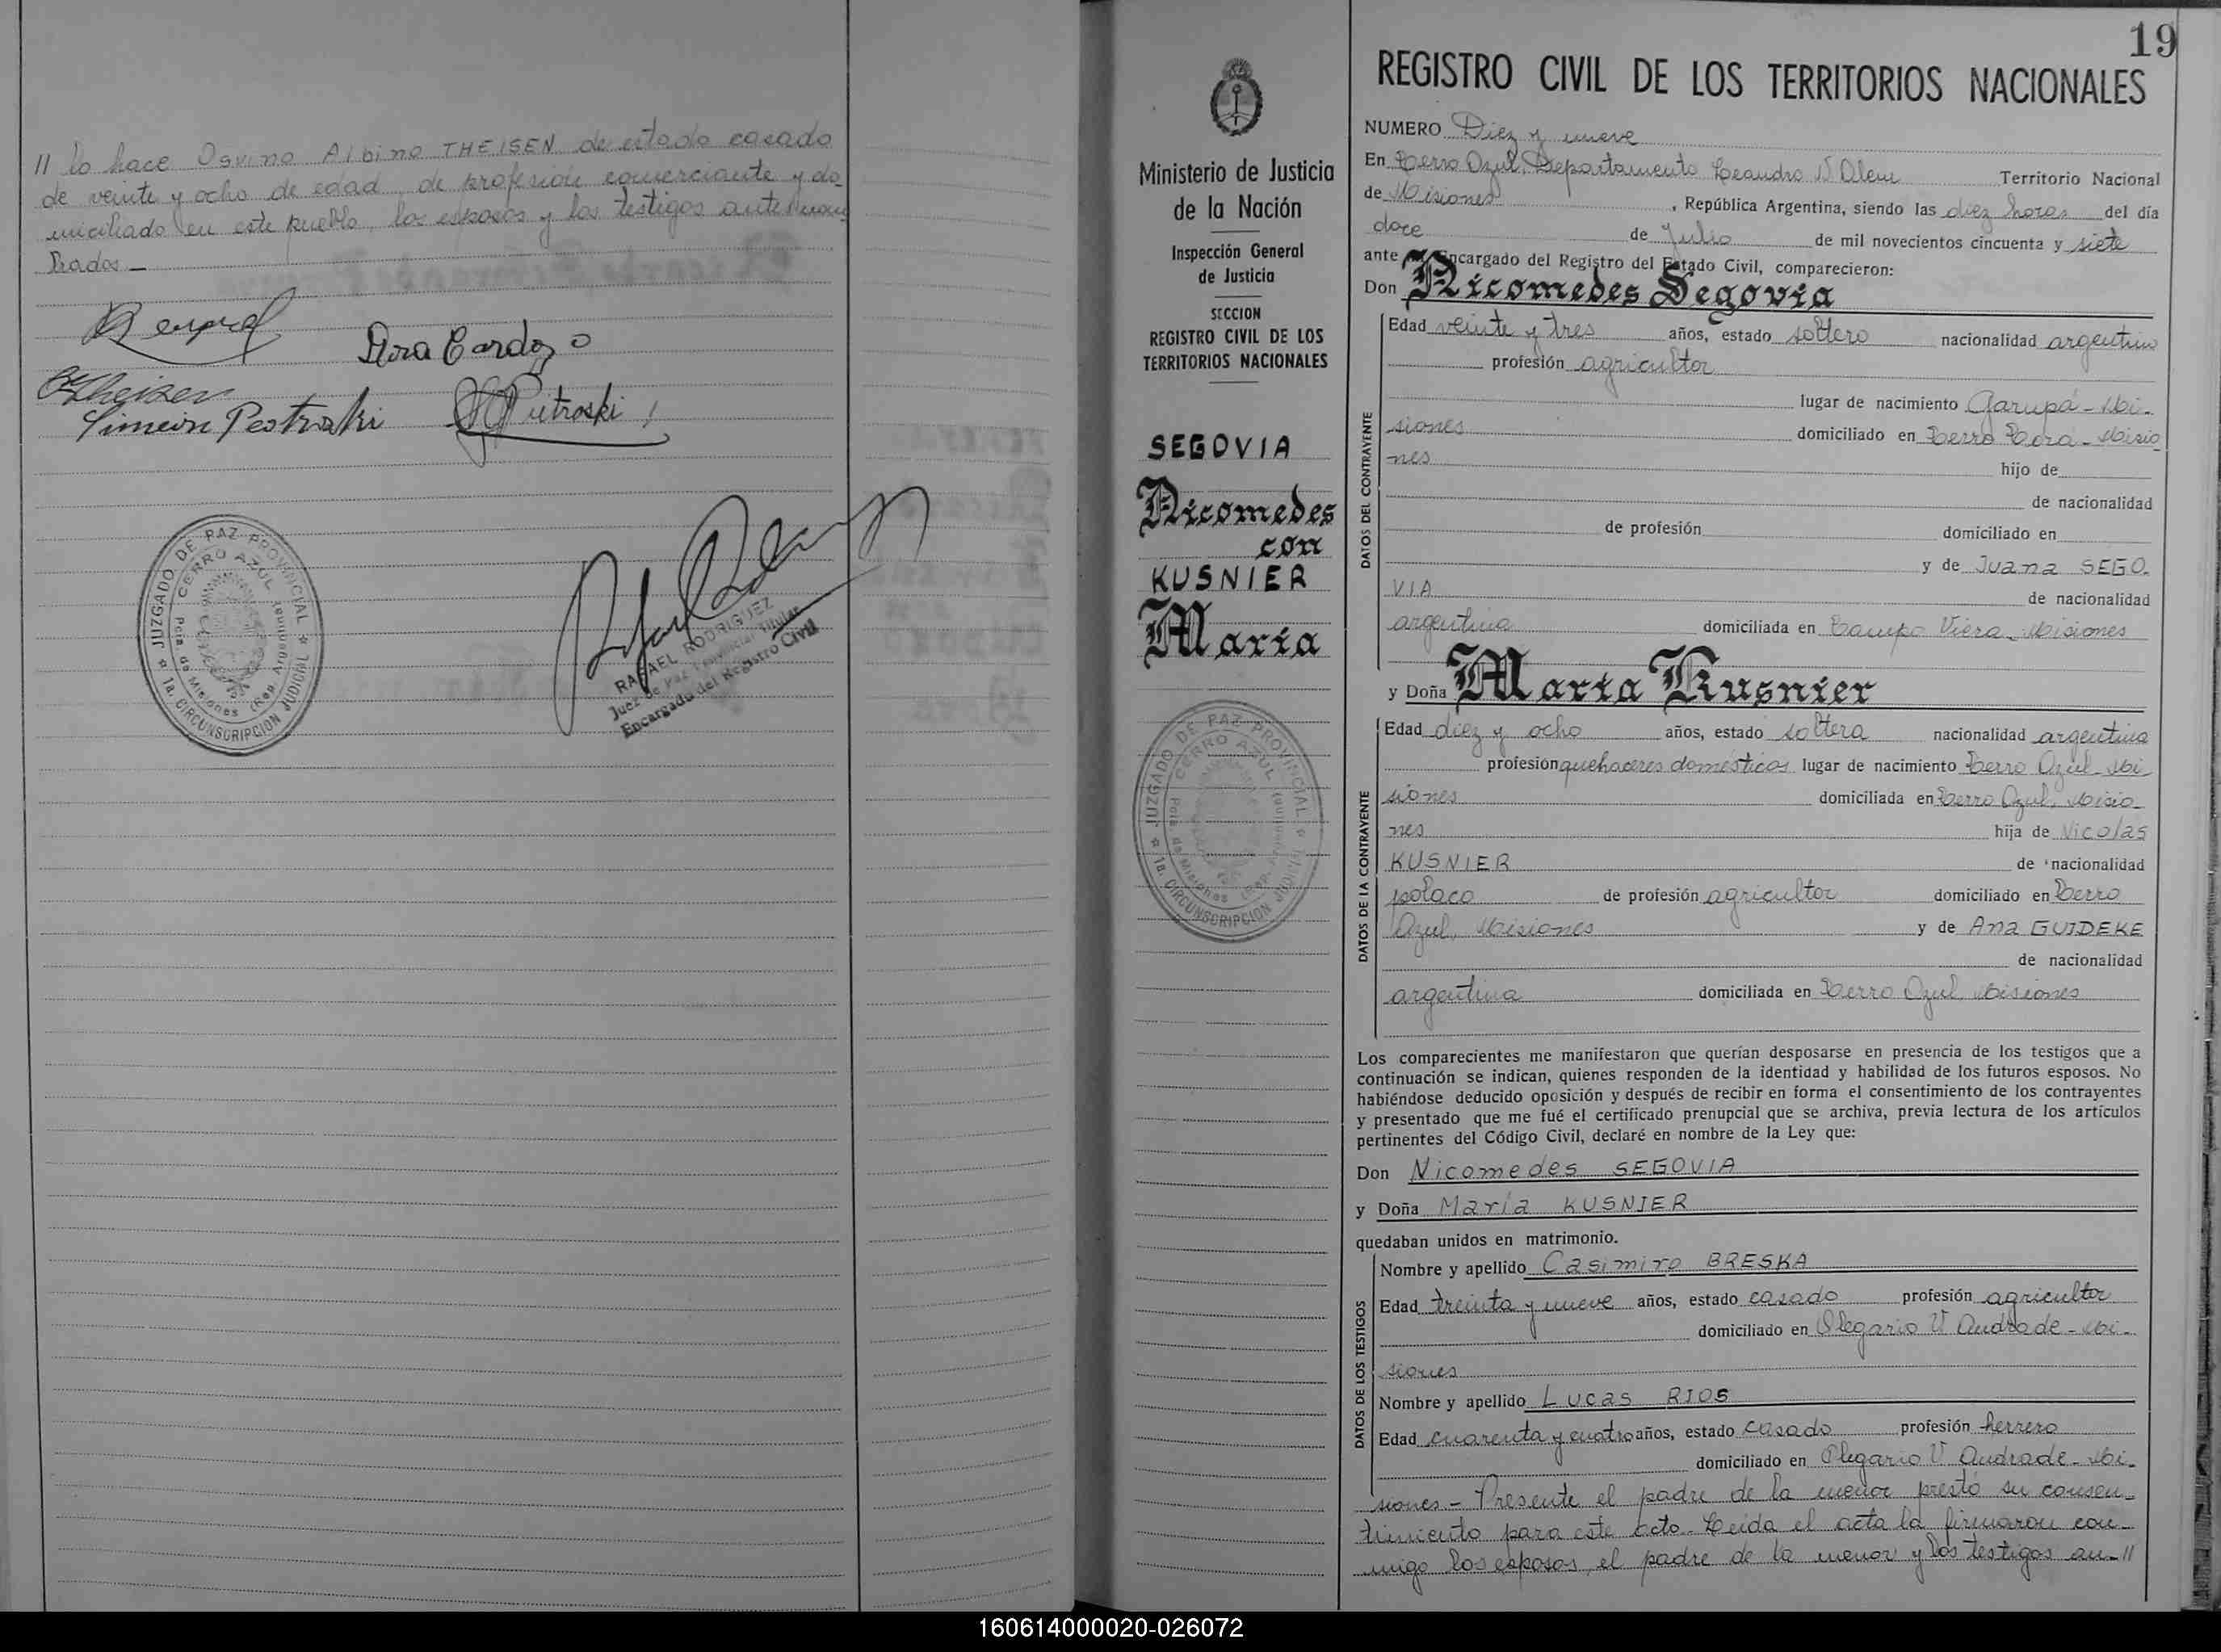 // lo hace Osvino Albino THEISEN de estado casado
de veinte y ocho de edad, de profesión comerciante y do-
miciliado en este pueblo, los esposos y los testigos antenom-
brados.-
Ana Cardozo
Simeón Pestraki
JUZGADO DE PAZ PROVINCIAL
CERRO AZUL
Pcia. de Misiones (Rep. Argentina)
1a. CIRCUNSCRIPCION JUDICIAL
RAFAEL RODRIGUEZ
Juez de Paz Provincial Titular
Encargado del Registro Civil
Ministerio de Justicia
de la Nación
Inspección General
de Justicia
SECCION
REGISTRO CIVIL DE LOS
TERRITORIOS NACIONALES
SEGOVIA
Nicomedes
con
KUSNIER
Maria
JUZGADO DE PAZ PROVINCIAL
CERRO AZUL
Pcia. de Misiones (Rep. Argentina)
1a. CIRCUNSCRIPCION JUDICIAL
19
REGISTRO CIVIL DE LOS TERRITORIOS NACIONALES
NUMERO Diez y nueve
En Cerro Azul, Departamento Leandro N Alem Territorio Nacional
de Misiones, República Argentina, siendo las diez horas del día
doce de Julio de mil novecientos cincuenta y siete
ante Encargado del Registro del Estado Civil, comparecieron:
Don Nicomedes Segovia
DATOS DEL CONTRAYENTE
Edad veinte y tres años, estado soltero nacionalidad argentino
profesión agricultor
lugar de nacimiento Garupá - Mi-
siones domiciliado en Cerro Corá - Misio-
nes hijo de
de nacionalidad
de profesión domiciliado en
y de Juana SEGO-
VIA de nacionalidad
argentina domiciliada en Campo Viera - Misiones
y Doña Maria Kusnier
DATOS DE LA CONTRAYENTE
Edad diez y ocho años, estado soltera nacionalidad argentina
profesión quehaceres domésticos lugar de nacimiento Cerro Azul - Mi-
siones domiciliada en Cerro Azul, Misio-
nes hija de Nicolas
KUSNIER de nacionalidad
polaco de profesión agricultor domiciliado en Cerro
Azul, Misiones y de Ana GUIDEKE
de nacionalidad
argentina domiciliada en Cerro Azul, Misiones
Los comparecientes me manifestaron que querían desposarse en presencia de los testigos que a
continuación se indican, quienes responden de la identidad y habilidad de los futuros esposos. No
habiéndose deducido oposición y después de recibir en forma el consentimiento de los contrayentes
y presentado que me fué el certificado prenupcial que se archiva, previa lectura de los artículos
pertinentes del Código Civil, declaré en nombre de la Ley que:
Don Nicomedes SEGOVIA
y Doña María KUSNIER
quedaban unidos en matrimonio.
DATOS DE LOS TESTIGOS
Nombre y apellido Casimiro BRESKA
Edad treinta y nueve años, estado casado profesión agricultor
domiciliado en Olegario V Andrade - Mi-
siones
Nombre y apellido Lucas RIOS
Edad cuarenta y cuatro años, estado casado profesión herrero
domiciliado en Olegario V Andrade - Mi-
siones - Presente el padre de la menor prestó su consen-
timiento para este acto. Leída el acta la firmaron con-
migo los esposos, el padre de la menor y los testigos an-//
160614000020-026072